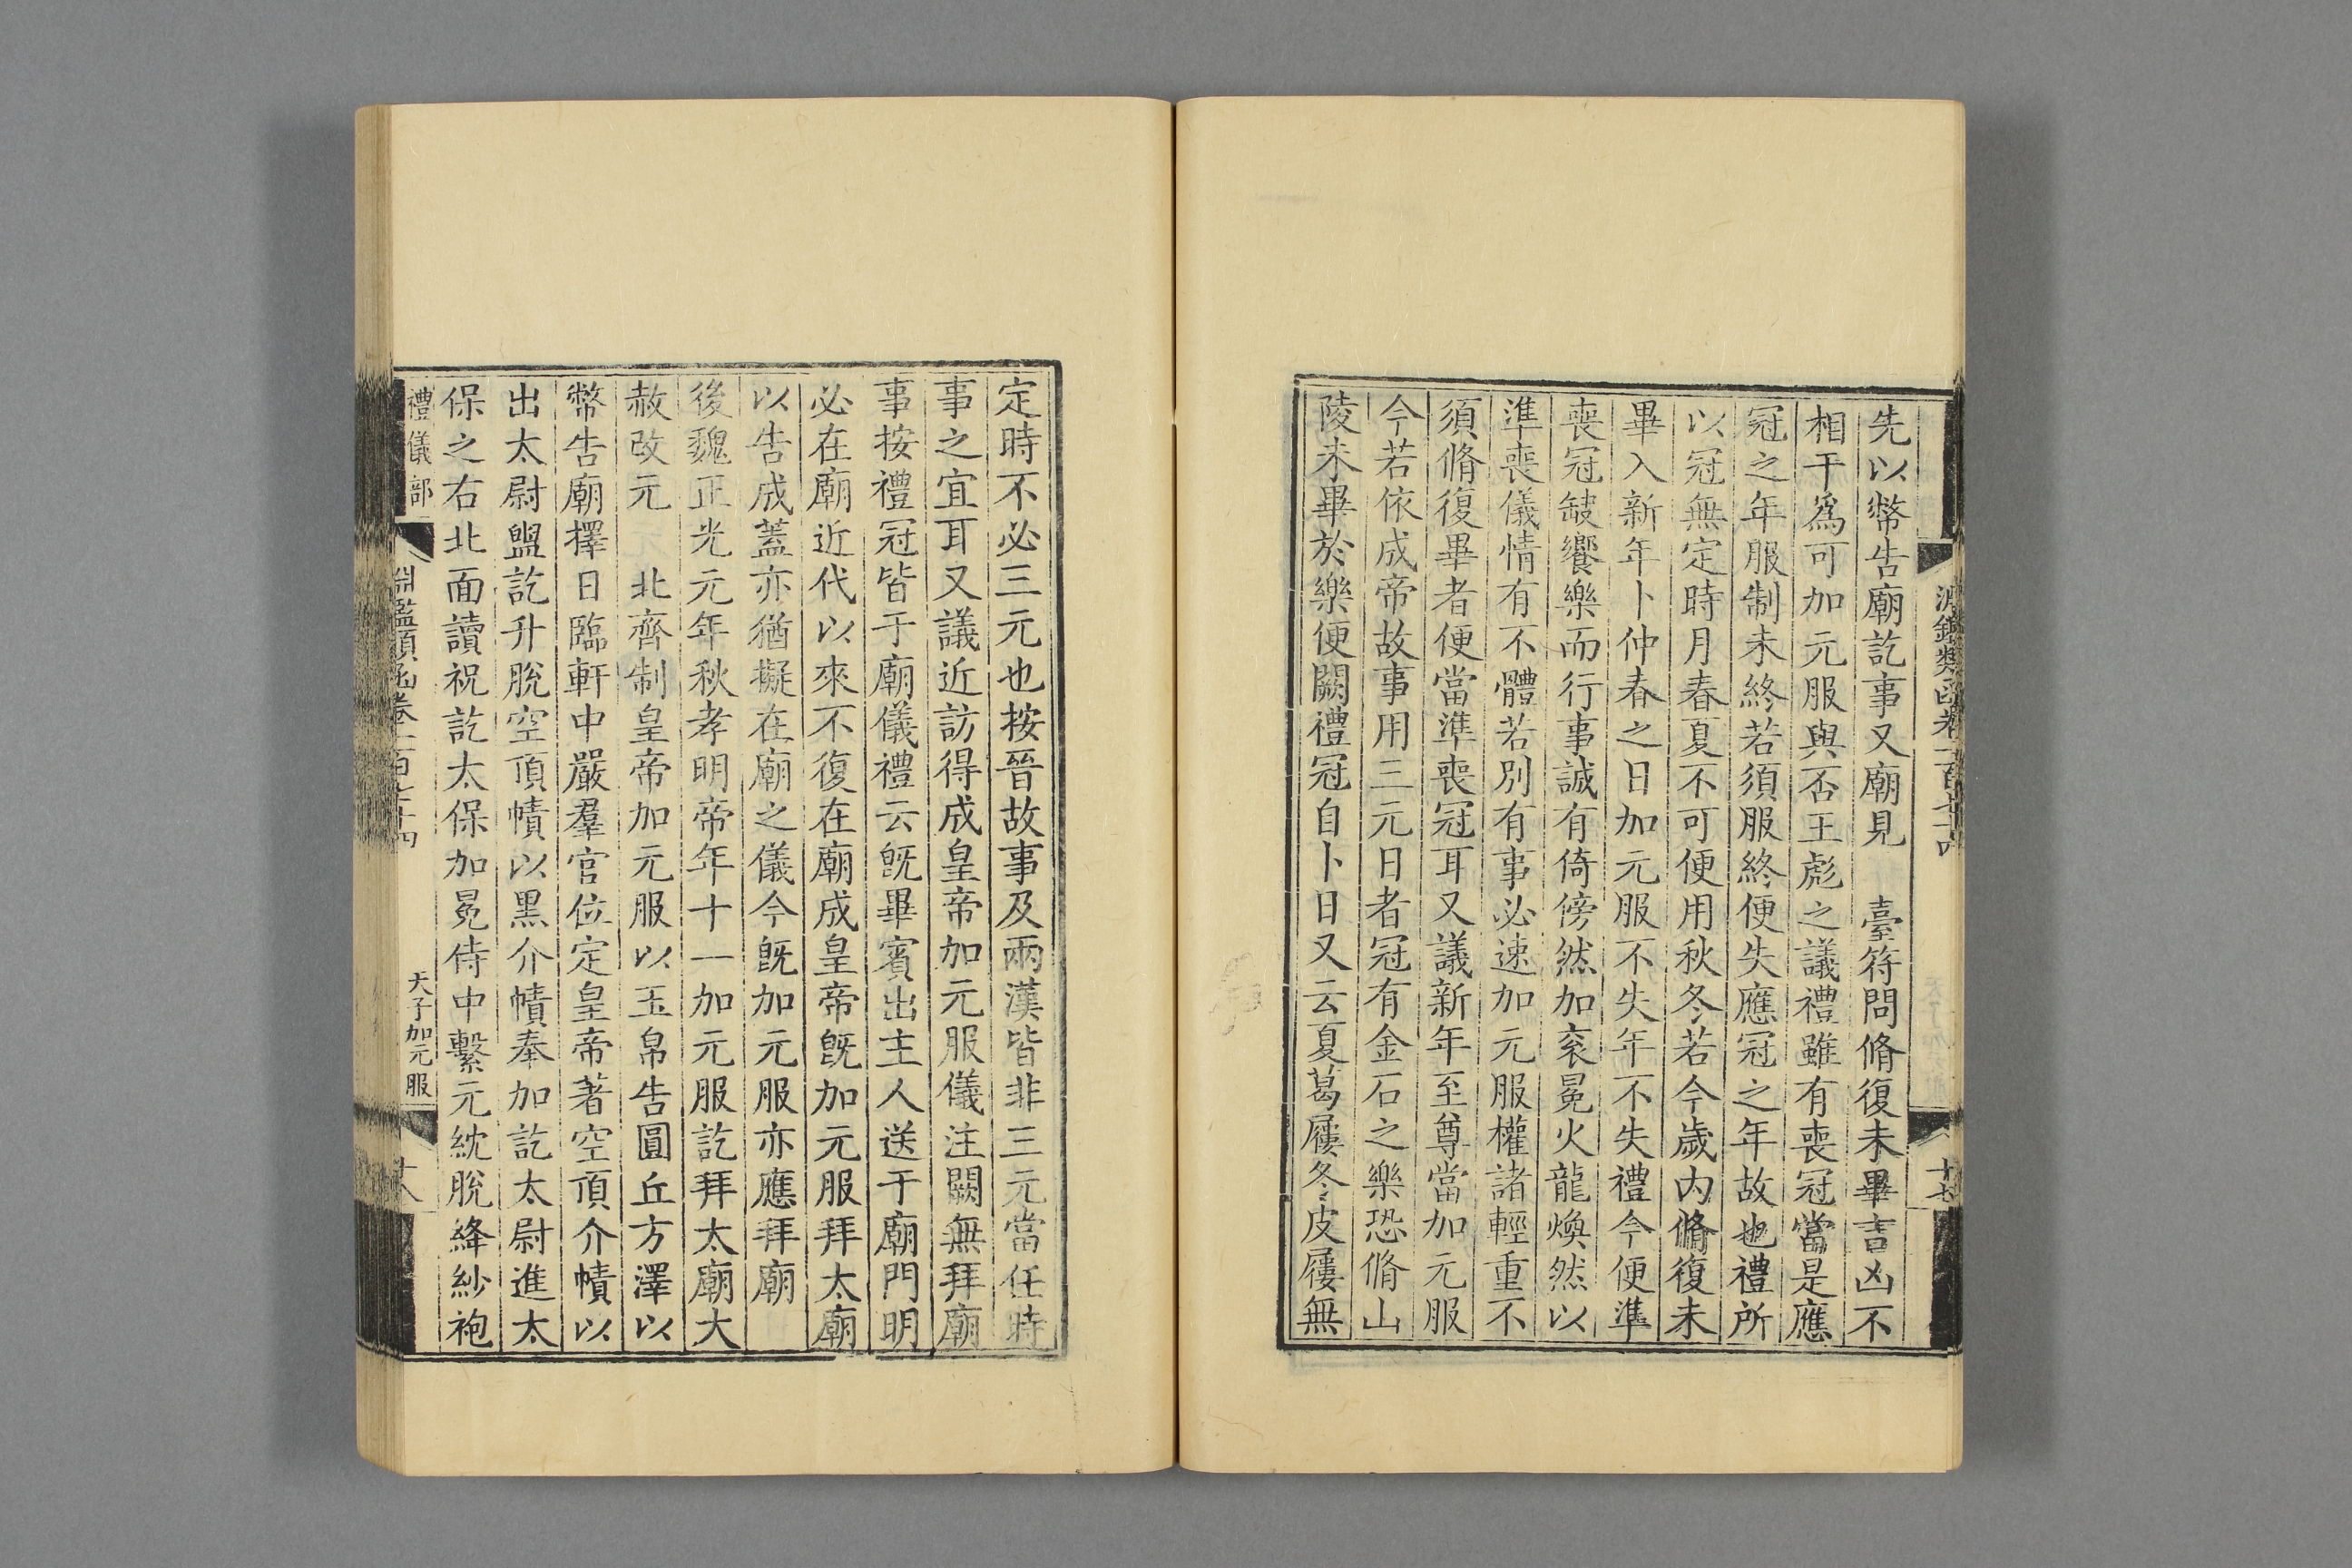 先以幣告廟訖事又廟見　臺符問脩復未畢吉凶不
相干爲可加元服與否王彪之議禮雖有喪冠當是應
冠之年服制未終若須服終便失應冠之年故也禮所
以冠無定時月春夏不可便用秋冬若今歲内脩復未
畢入新年卜仲春之日加元服不失年不失禮今便準
喪冠缺饗樂而行事誠有倚傍然加衮冕火龍煥然以
準喪儀情有不體若別有事必速加元服權諸輕重不
須脩復畢者便當準喪冠耳又議新年至尊當加元服
今若依成帝故事用三元日者冠有金石之樂恐脩山
陵未畢於樂便闕禮冠自卜日又云夏葛屨冬皮屨無
定時不必三元也按晉故事及兩漢皆非三元當任時
事之宜耳又議近訪得成皇帝加元服儀注闕無拜廟
事按禮冠皆于廟儀禮云旣畢賓出主人送于廟門明
必在廟近代以來不復在廟成皇帝旣加元服拜太廟
以告成蓋亦猶擬在廟之儀今旣加元服亦應拜廟
後魏正光元年秋孝明帝年十一加元服訖拜太廟大
赦改元　北齊制皇帝加元服以玉帛告圓丘方澤以
幣告廟擇日臨軒中嚴羣官位定皇帝著空頂介幘以
出太尉盥訖升脫空頂幘以黑介幘奉加訖太尉進太
保之右北面讀祝訖太保加冕侍中繫元紞脫絳紗袍
禮儀部
淵鑑類函卷一百七十四
天子加元服
十八